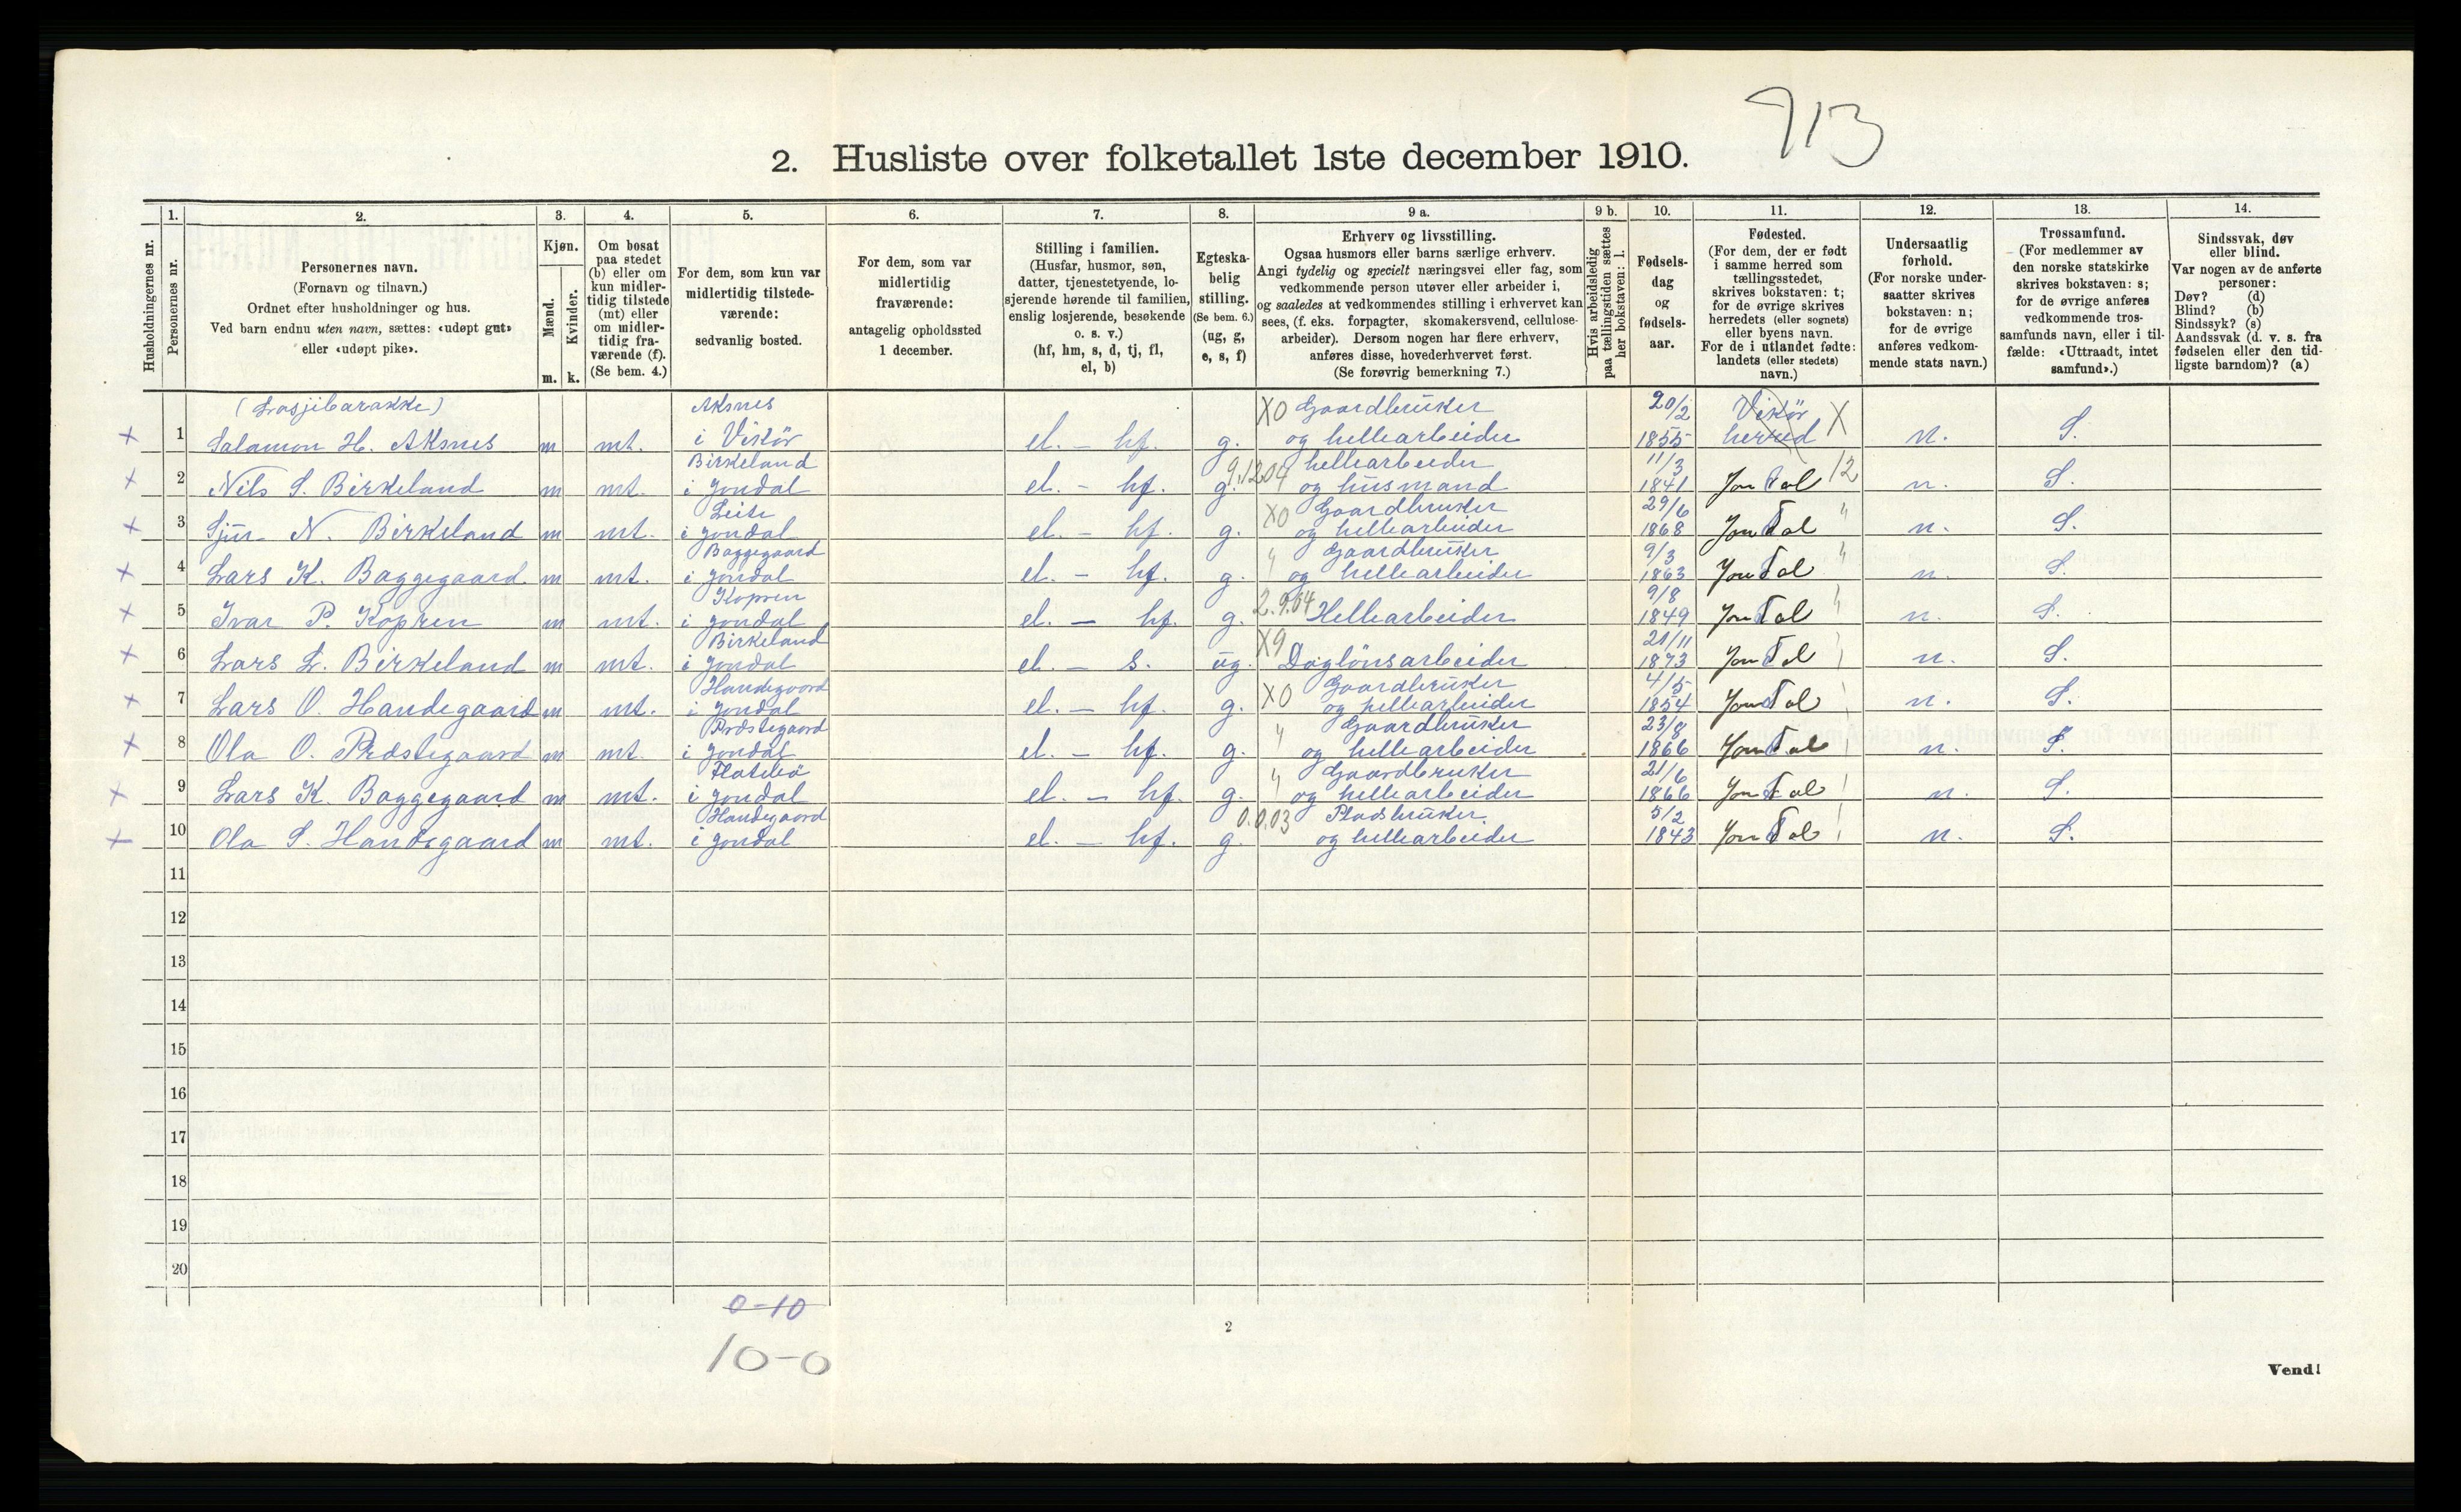 713
2. Husliste over folketallet 1ste december 1910.
Husholdningernes nr.
1. Personernes nr.
2. Personernes navn.
(Fornavn og tilnavn.)
Ordnet efter husholdninger og hus.
Ved barn endnu uten navn, sættes: «udøpt gut»
eller «udøpt pike».
3. Kjøn.
Mænd. Kvinder.
m. k.
4. Om bosat
paa stedet
(b) eller om
kun midler-
tidig tilstede
(mt) eller
om midler-
tidig fra-
værende (f).
(Se bem. 4.)
5. For dem, som kun var
midlertidig tilstede-
værende:
sedvanlig bosted.
6. For dem, som var
midlertidig
fraværende:
antagelig opholdssted
1 december.
7. Stilling i familien.
(Husfar, husmor, søn,
datter, tjenestetyende, lo-
sjerende hørende til familien,
enslig losjerende, besøkende
o. s. v.)
(hf, hm, s, d, tj, fl,
el, b)
8. Egteska-
belig
stilling.
(Se bem. 6.)
(ug, g,
e, s, f)
9 a. Erhverv og livsstilling.
Ogsaa husmors eller barns særlige erhverv.
Angi tydelig og specielt næringsvei eller fag, som
vedkommende person utøver eller arbeider i,
og saaledes at vedkommendes stilling i erhvervet kan
sees, (f. eks. forpagter, skomakersvend, cellulose-
arbeider). Dersom nogen har flere erhverv,
anføres disse, hovederhvervet først.
(Se forøvrig bemerkning 7.)
9 b. Hvis arbeidsledig
paa tællingstiden sættes
her bokstaven: l.
10. Fødsels-
dag
og
fødsels-
aar.
11. Fødested.
(For dem, der er født
i samme herred som
tællingsstedet,
skrives bokstaven: t;
for de øvrige skrives
herredets (eller sognets)
eller byens navn.
For de i utlandet fødte:
landets (eller stedets)
navn.)
12. Undersaatlig
forhold.
(For norske under-
saatter skrives
bokstaven: n;
for de øvrige
anføres vedkom-
mende stats navn.)
13. Trossamfund.
(For medlemmer av
den norske statskirke
skrives bokstaven: s;
for de øvrige anføres
vedkommende tros-
samfunds navn, eller i til-
fælde: «Uttraadt, intet
samfund».)
14. Sindssvak, døv
eller blind.
Var nogen av de anførte
personer:
Døv? (d)
Blind? (b)
Sindssyk? (s)
Aandssvak (d. v. s. fra
fødselen eller den tid-
ligste barndom)? (a)
(Losjibarakke) Aksnes X0 Gaardbruker 20/2 Vikör X
x 1 Salamon H. Aksnes m mt. i Vikör el. - hf. g. og hellearbeider 1855 herred n. S.
Birkeland 9.1204 hellearbeider 11/3
x 2 Nils S. Birkeland m mt. i Jondal el. - hf. g. og husmand 1841 Jondal 12 n. S.
Leite X0 Gaardbruker 29/6
x 3 Sjur N. Birkeland m mt. i Jondal el. - hf. g. og hellearbeider 1868 Jondal " n. S.
Baggegaard " Gaardbruker 9/3
x 4 Lars K. Baggegaard m mt. i Jondal el. - hf. g. og hellearbeider 1863 Jondal " n. S.
Kopren 2.9.64 9/8
x 5 Ivar P. Kopren m mt. i Jondal el. - hf. g. Hellearbeider 1849 Jondal " n. S.
Birkeland X9 21/11
x 6 Lars L. Birkeland m mt. i Jondal el. - s. ug. Daglönsarbeider 1873 Jondal n. S.
Handegaard X0 Gaardbruker 4/5
x 7 Lars O. Handegaard m mt. i Jondal el. - hf. g. og hellearbeider 1854 Jondal n. S.
Præstegaard " Gaardbruker 23/8
x 8 Ola O. Præstegaard m mt. i Jondal el. - hf. g. og hellearbeider 1866 Jondal n. S.
Flatebö " Gaardbruker 21/6
x 9 Lars K. Baggegaard m mt. i Jondal el. - hf. g. og hellearbeider 1866 Jondal n. S.
Handegaard 0.0.03 Pladsbruker 5/2
x 10 Ola S. Handegaard m mt. i Jondal el. - hf. g. og hellearbeider 1843 Jondal n. S.
11
12
13
14
15
16
17
18
19
20
0-10
10-0
2
Vend!